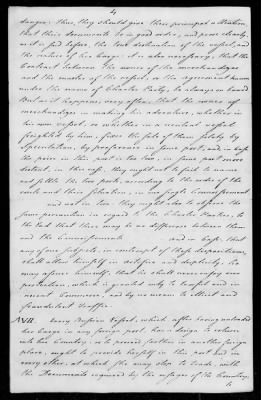 4
danger: thus, they should give their principal attention,
that their documents be in good order, and prove clearly,
as it is said before, the true destination of the vessel, and
the nature of her cargo: it is also necessary, that the
Contract between the owner of the merchandizes
and the master of the vessel, or the agreement known
under the name of Charter Party, be always on board
But as it happens very often, that the owner of
merchandizes in making his adventure, whether in
his own vessel, or whether in a neutral vessel
freighted by him, fixes the sale of them solely by
speculation, by preference in some port, and in case
the price in this port is too low, in some port more
distant, in this case, they ought not to fail to name
and settle the two ports, according to the order of the
route and their situation, in one single Connoissement
and not in two; they ought also to observe the
same precaution in regard to the Charter Parties, to
the End that there may be no difference between them
and the Connoissement and in case that
any of our subjects, in contempt of these dispositions,
shall allow himself in artifice and duplicity, he
may assure himself, that he shall never enjoy our
protection, which is granted only to lawful and in-
nocent Commerce, and by no means to illicit and
fraudulent traffic.
XVII. Every Russian Vessel, which after having unloaded
her Cargo in any foreign port, has a design to return
into her Country, or to proceed further in another foreign
place, ought to provide herself in this port and in
every other, at which she may stop to trade, with
the Documents required by the usages of the Country,
to